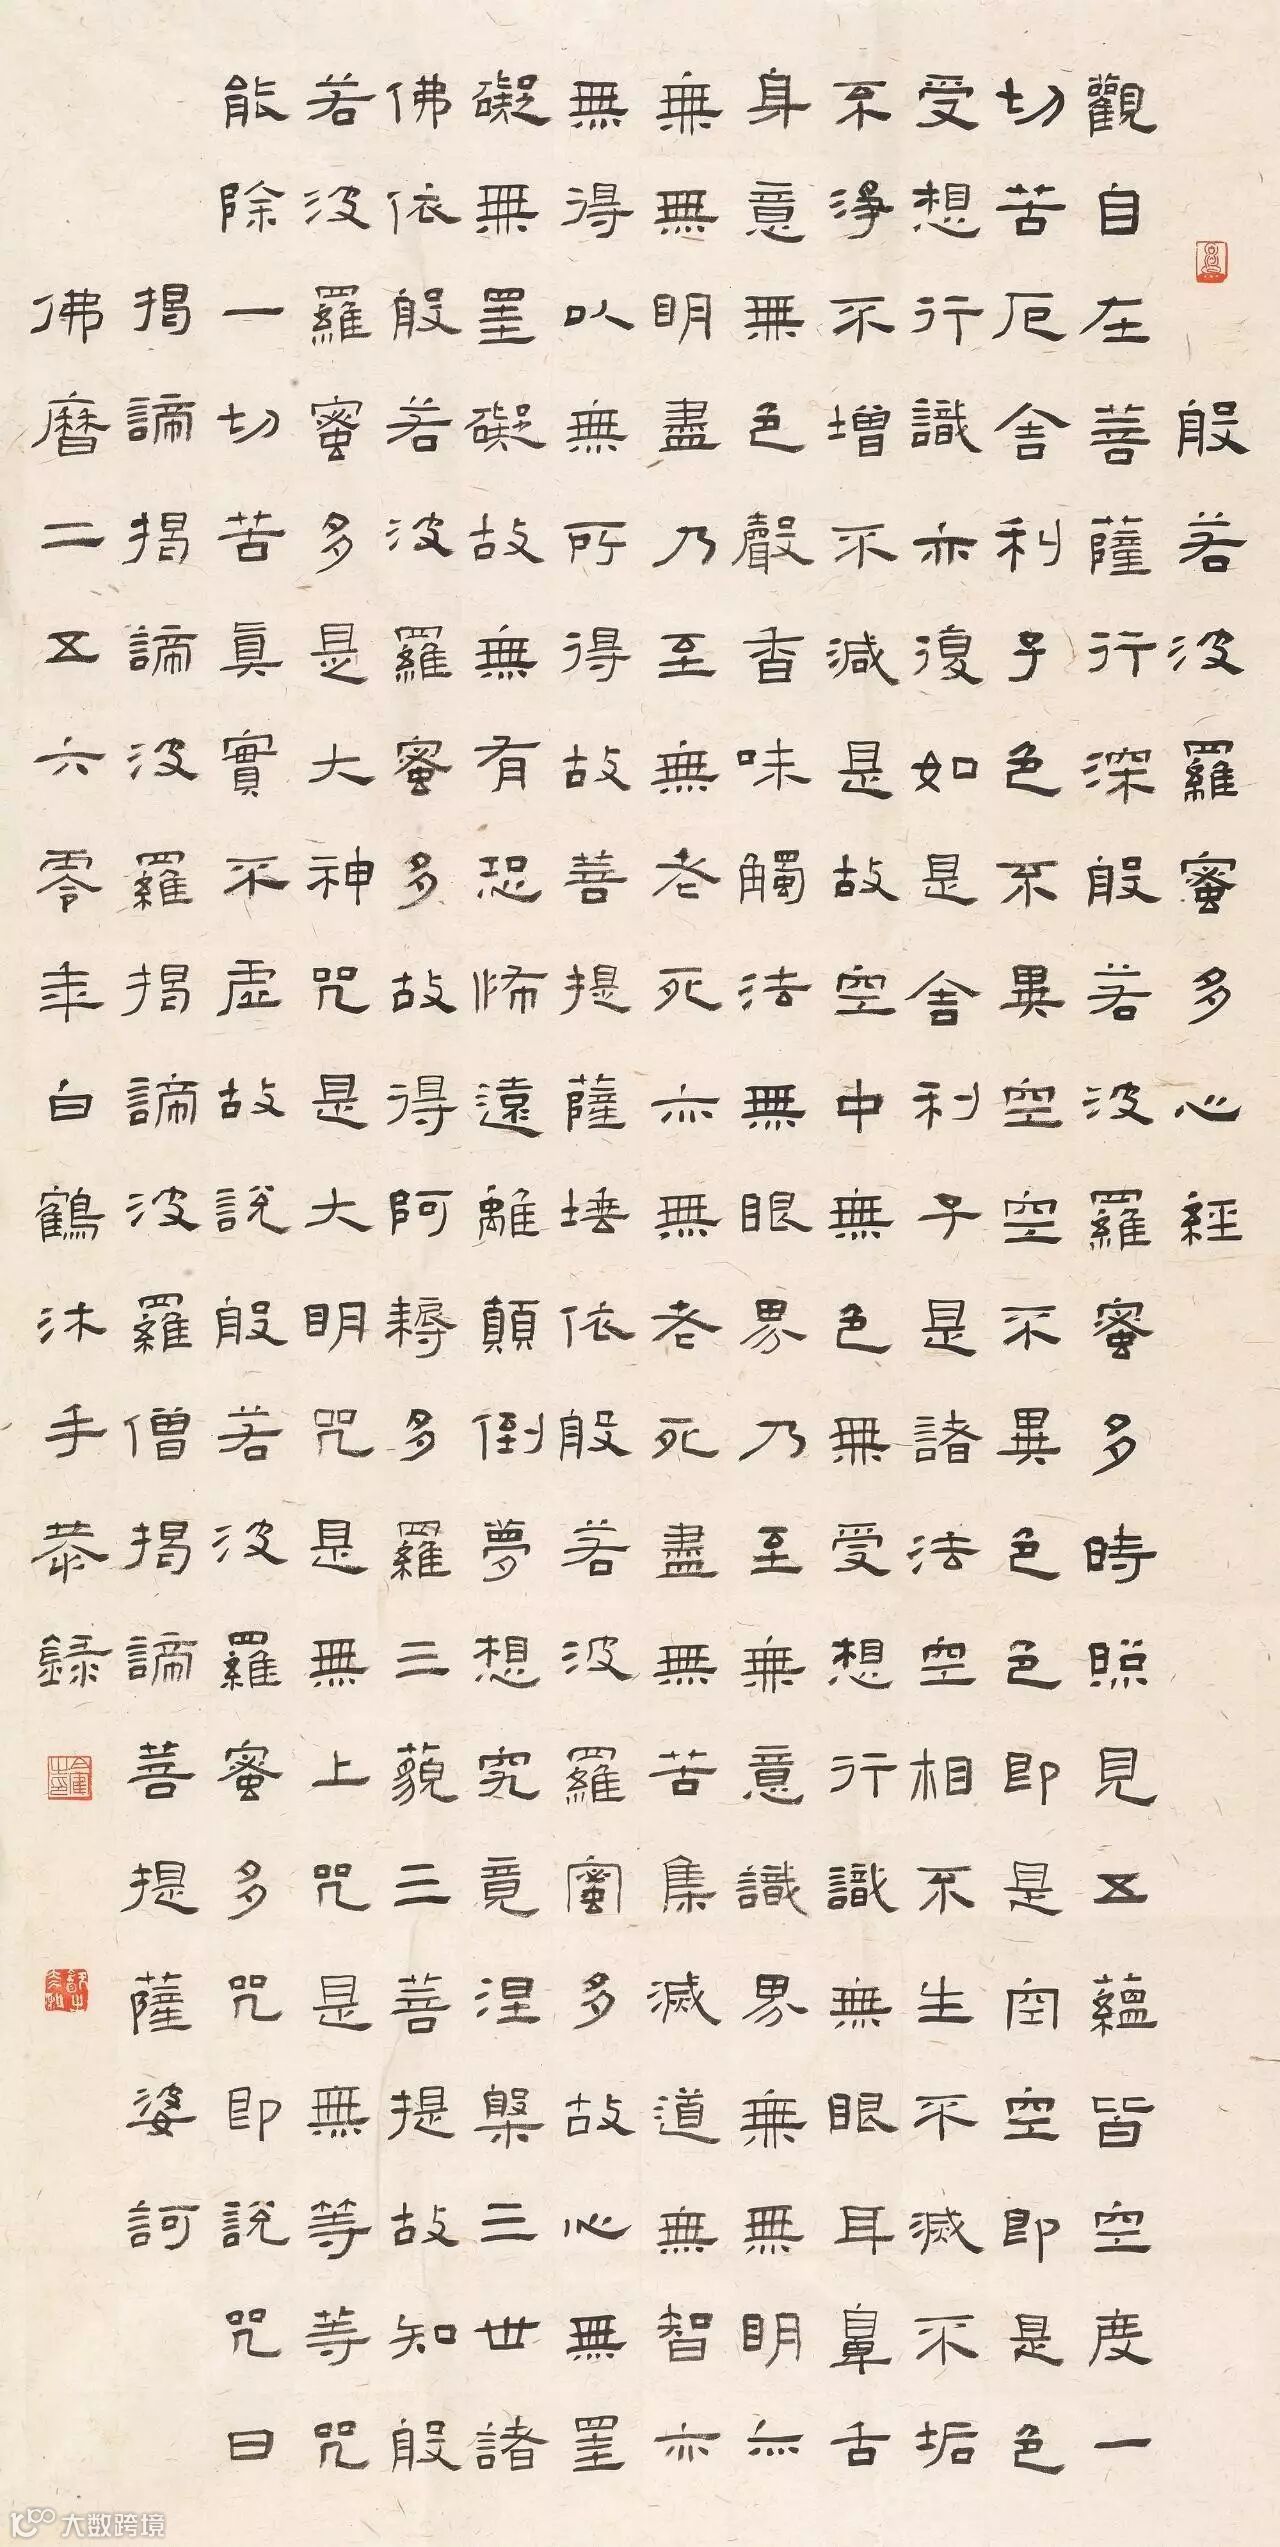 般若波羅蜜多心經
觀自在菩薩行深般若波羅蜜多時照見五蘊皆空度一
切苦厄舍利子色不異空空不異色色即是空空即是色
受想行識亦復如是舍利子是諸法空相不生不滅不垢
不淨不增不減是故空中無色無受想行識無眼耳鼻舌
身意無色聲香味觸法無眼界乃至無意識界無無明亦
無無明盡乃至無老死亦無老死盡無苦集滅道無智亦
無得以無所得故菩提薩埵依般若波羅蜜多故心無罣
礙無罣礙故無有恐怖遠離顛倒夢想究竟涅槃三世諸
佛依般若波羅蜜多故得阿耨多羅三藐三菩提故知般
若波羅蜜多是大神咒是大明咒是無上咒是無等等咒
能除一切苦眞實不虛故說般若波羅蜜多咒即說咒曰
揭諦揭諦波羅揭諦波羅僧揭諦菩提薩婆訶
佛曆二五六零年白鶴沐手恭錄
大数跨境